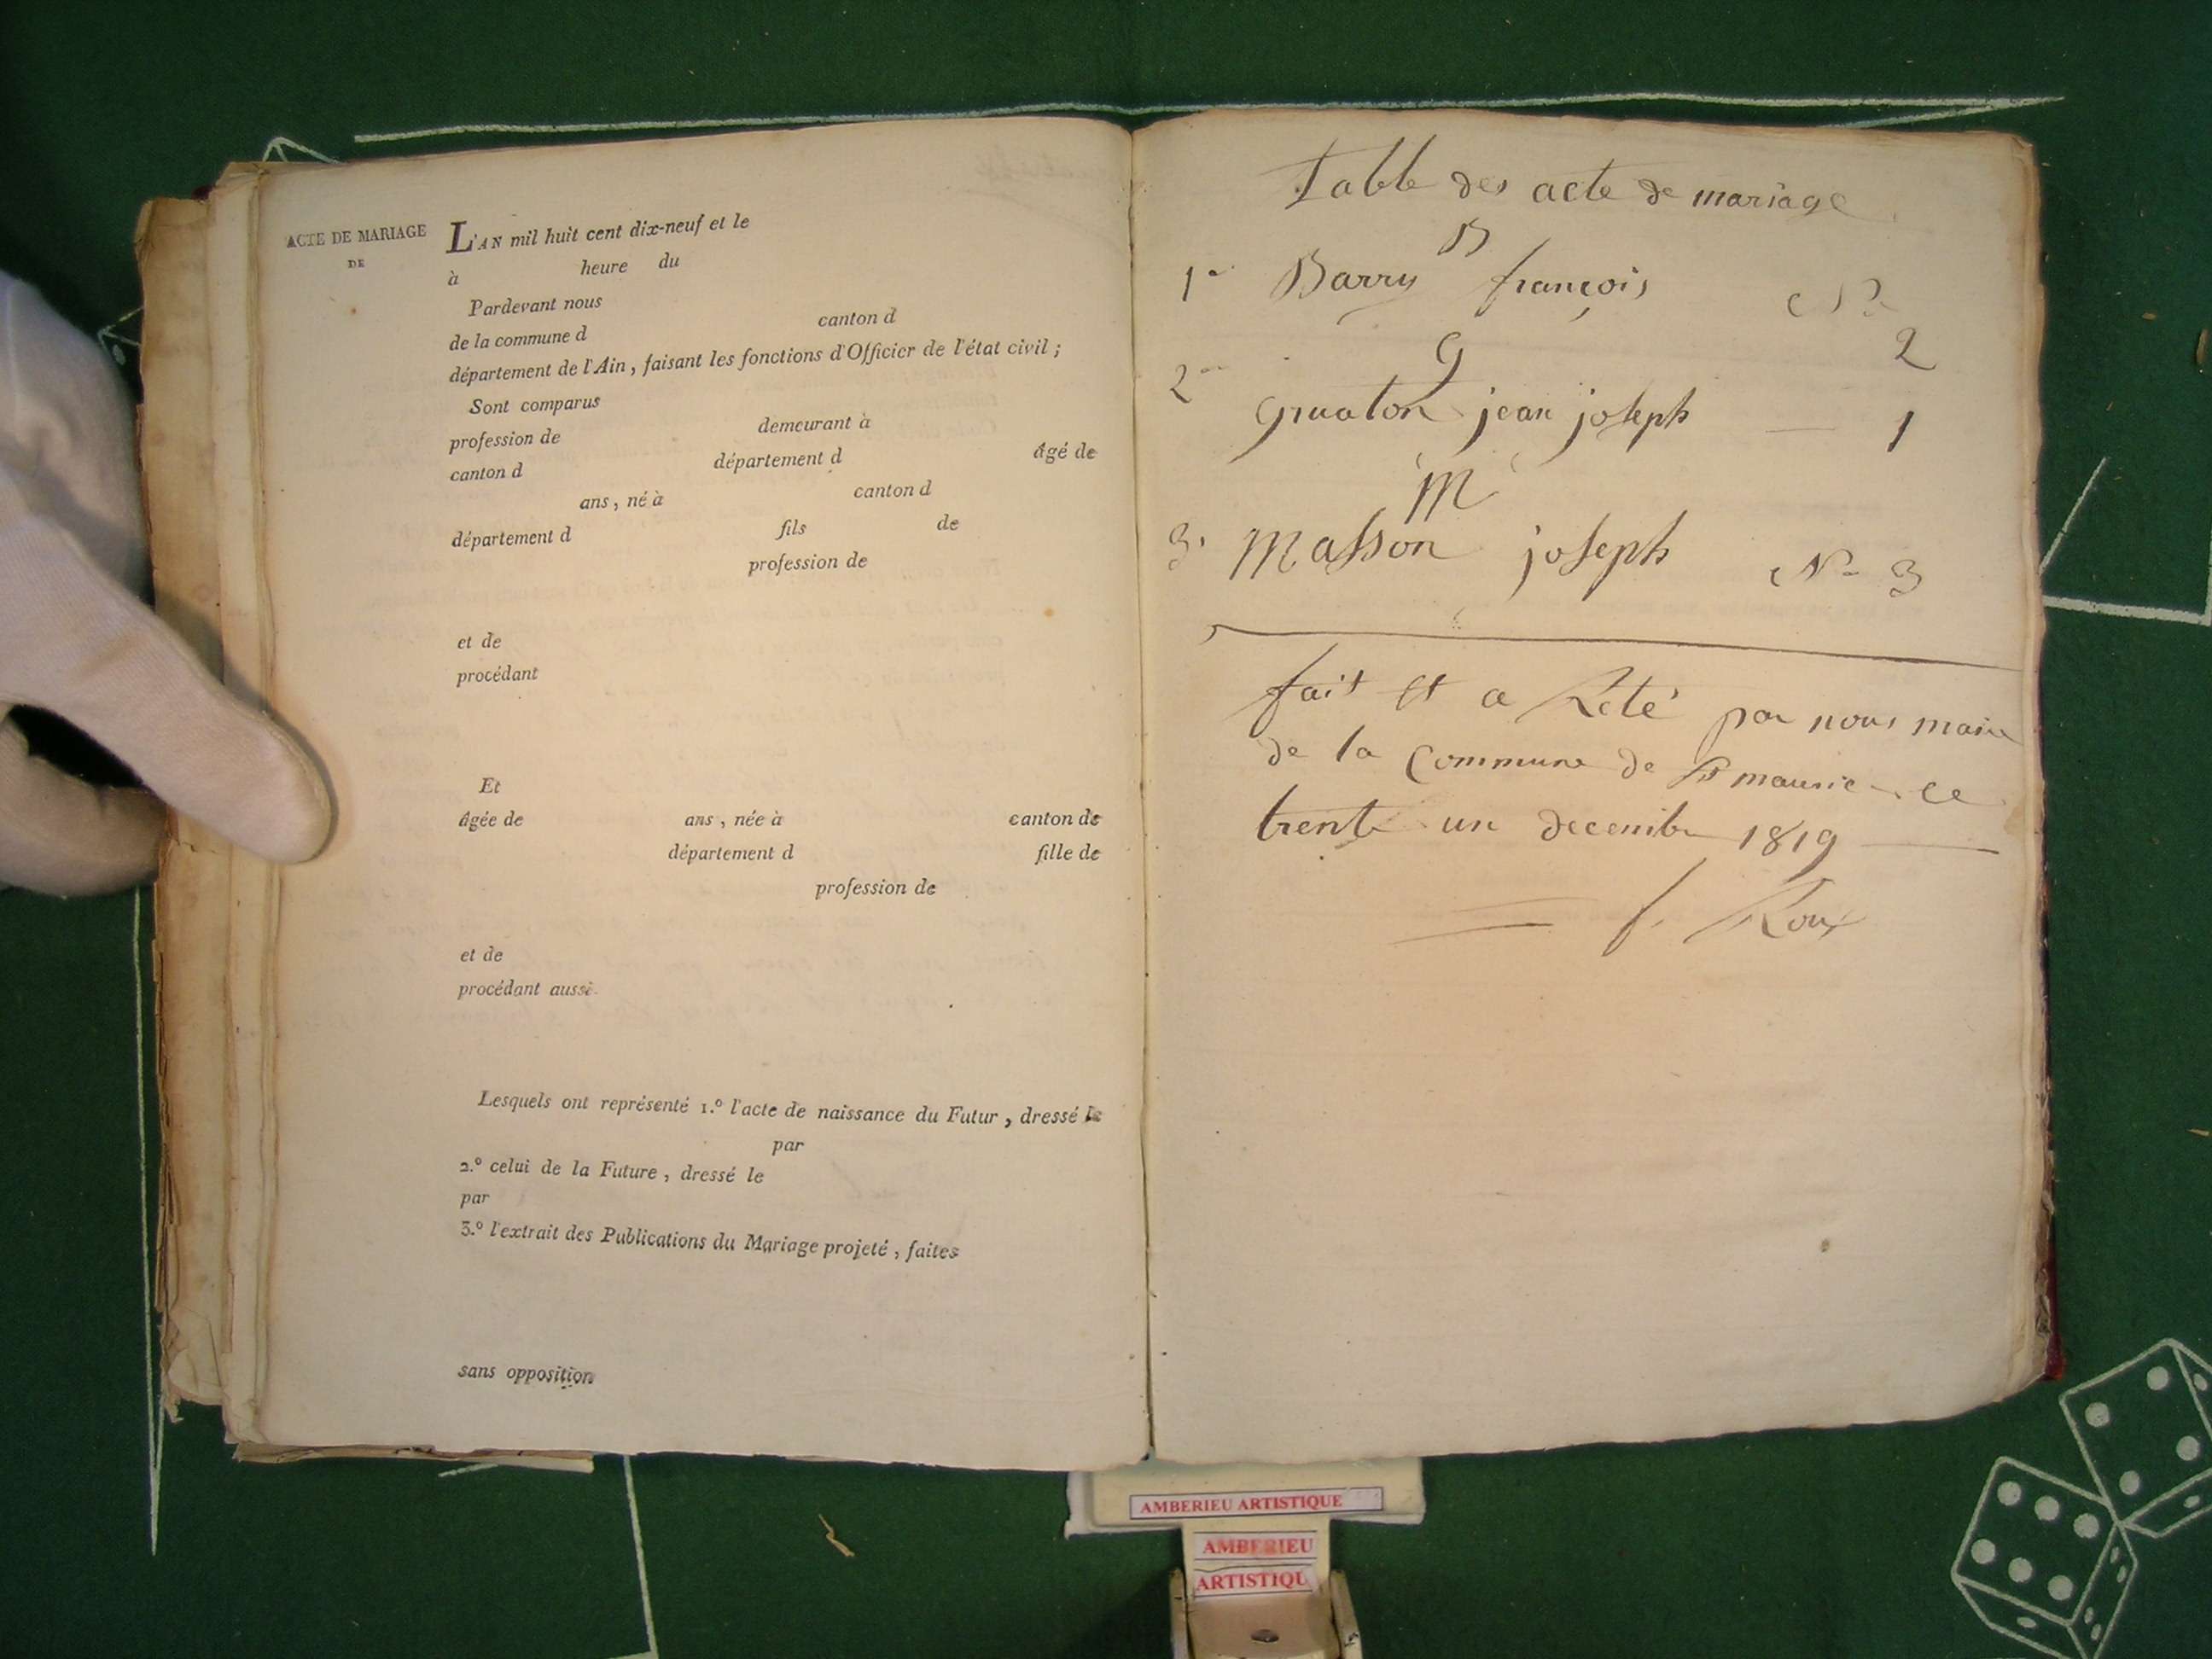 ACTE DE MARIAGE
DE
L'AN mil huit cent dix-neuf et le
à heure du
Pardevant nous
de la commune d canton d
département de l'Ain, faisant les fonctions d'Officier de l'état civil ;
Sont comparus
profession de demeurant à
canton d département d âgé de
ans, né à canton d
département d fils de
profession de
et de
procédant
Et
âgée de ans, née à canton de
département d fille de
profession de
et de
procédant aussi
Lesquels ont représenté 1.º l'acte de naissance du Futur, dressé le
par
2.º celui de la Future, dressé le
par
3.º l'extrait des Publications du Mariage projeté, faites
sans opposition
Table des acte de mariage
B
1 Barry françois No
2
G
2 Gruaton jean joseph — 1
M
3 Masson joseph No 3
fait et a Reté par nous maire
de la Commune de St maurice ce
trente un decembre 1819
f. Roux
AMBERIEU ARTISTIQUE
AMBERIEU
ARTISTIQU